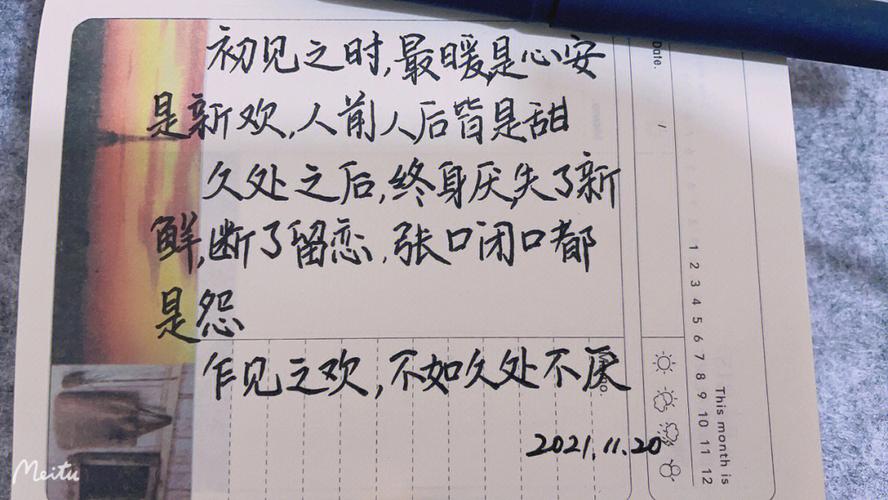 初见之时,最暖是心安
是新欢,人前人后皆是甜
久处之后,终身厌,失了新
鲜,断了留恋,张口闭口都
是怨
乍见之欢,不如久处不厌
2021.11.20
Date.
1 2 3 4 5 6 7 8 9 10 11 12
This month is
Meitu